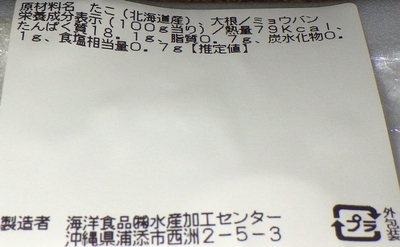 原材料名 たこ(北海道産) 大根/ミョウバン
栄養成分表示(100g当り)/熱量79Kcal、
たんぱく質18.1g、脂質0.7g、炭水化物0.
1g、食塩相当量0.7g【推定値】
製造者 海洋食品㈱水産加工センター
沖縄県浦添市西洲2-5-3
プラ
外包装